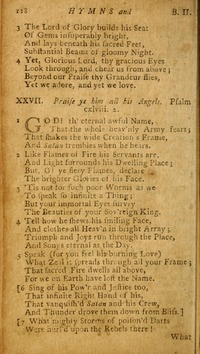 128 HYMNS and B. II.
3 The Lord of Glory builds his Seat
Of Gems insuperably bright,
And lays beneath his sacred Feet,
Substantial Beams of gloomy Night.
4 Yet, Glorious Lord, thy gracious Eyes
Look through, and chear us from above;
Beyond our Praise thy Grandeur flies,
Yet we adore, and yet we love.
XXVII. Praise ye him all his Angels. Psalm
cxlviii. 2.
1 GOD! th' eternal awful Name,
That the whole heav'nly Army fears;
That shakes the wide Creation's Frame,
And Satan trembles when he hears.
2 Like Flames of Fire his Servants are,
And Light surrounds his Dwelling Place;
But, O! ye fiery Flames, declare
The brighter Glories of his Face.
3 'Tis not for such poor Worms as we
To speak so infinite a Thing;
But your immortal Eyes survey
The Beauties of your Sov'reign King.
4 Tell how he shews his smiling Face,
And clothes all Heav'n in bright Array;
Triumph and Joys run through the Place,
And Songs eternal as the Day.
5 Speak (for you feel his burning Love)
What Zeal it spreads through all your Frame;
That sacred Fire dwells all above,
For we on Earth have lost the Name.
[6 Sing of his Pow'r and Justice too,
That infinite Right Hand of his,
That vanquish'd Satan and his Crew,
And Thunder drove them down from Bliss.]
[7 What mighty Storms of poison'd Darts
Were hurl'd upon the Rebels there!
What